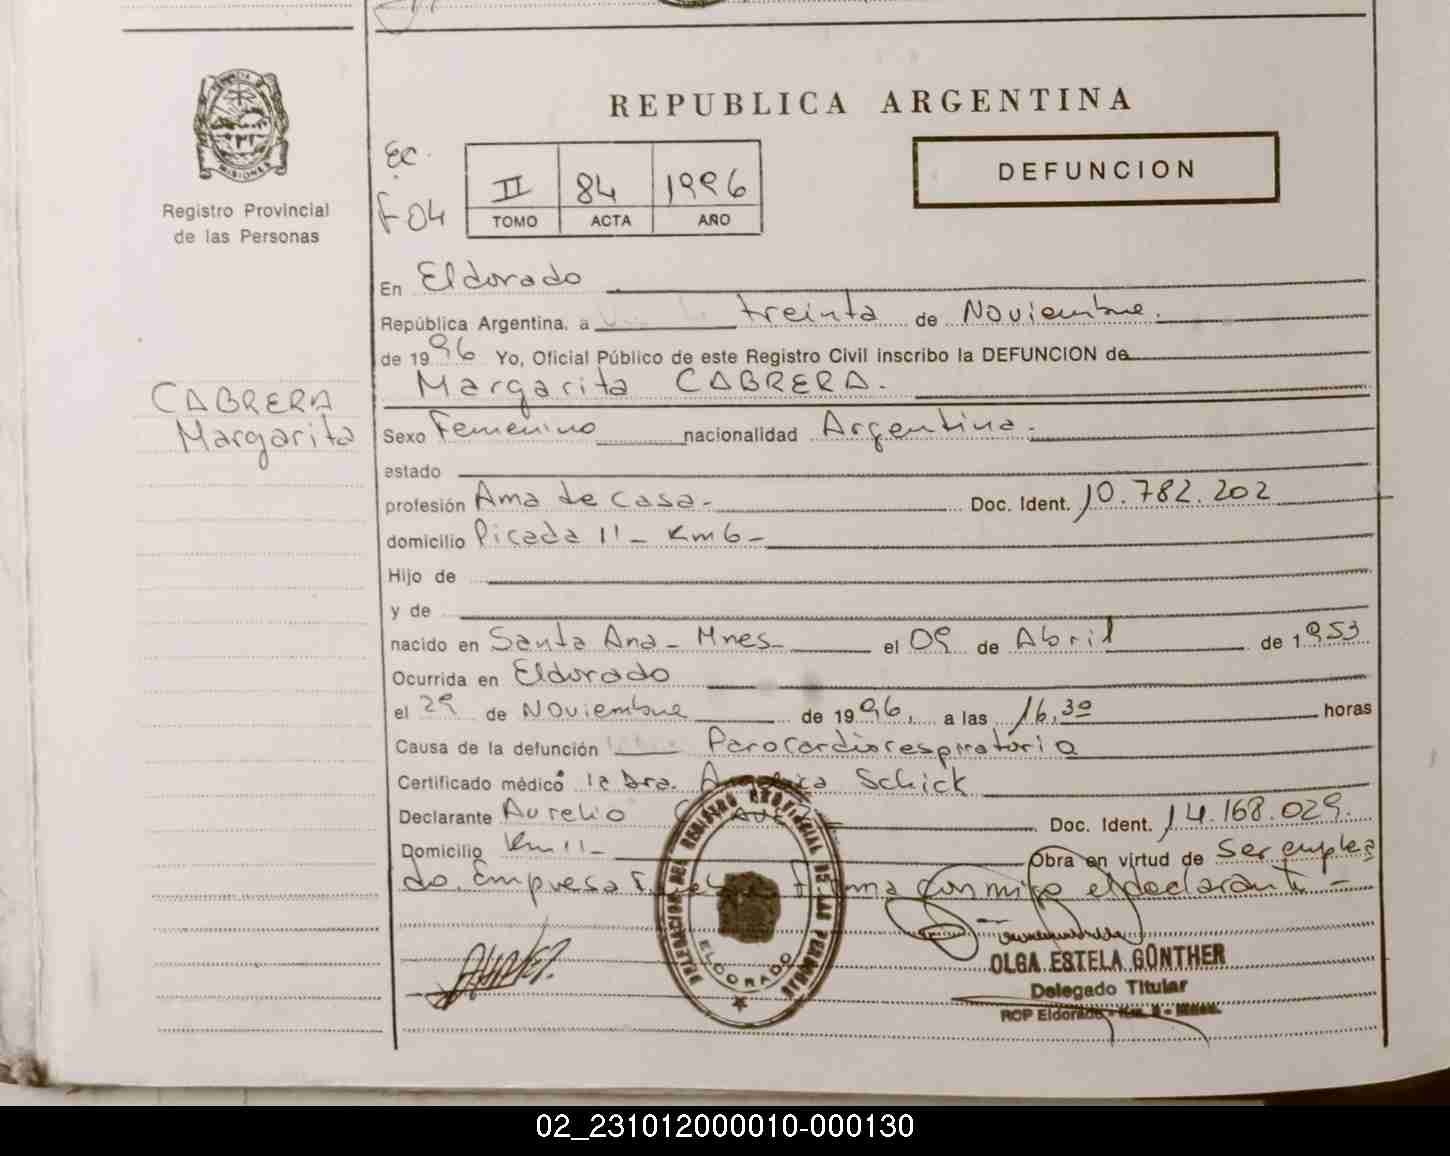 PROVINCIA DE
MISIONES
Registro Provincial
de las Personas
CABRERA
Margarita
REPUBLICA ARGENTINA
EC.
F-04
II 84 1996
TOMO ACTA AÑO
DEFUNCION
En Eldorado
República Argentina, a treinta de Noviembre.
de 1996 Yo, Oficial Público de este Registro Civil inscribo la DEFUNCION de
Margarita CABRERA.
Sexo Femenino nacionalidad Argentina.
estado
profesión Ama de casa- Doc. Ident. 10.782.202
domicilio Picada 11- Km 6-
Hijo de
y de
nacido en Santa Ana- Mnes- el 09 de Abril de 1953
Ocurrida en Eldorado
el 29 de Noviembre de 1996, a las 16,30 horas
Causa de la defunción Parocardiorespiratorio
Certificado médico la Dra. Schick
Declarante Aurelio Doc. Ident. 14.168.029.
Domicilio Km 11- Obra en virtud de ser emplea
do. Empresa Firma conmigo el declarante-
DELEGACION DEL REGISTRO PROVINCIAL DE LAS PERSONAS
ELDORADO
OLGA ESTELA GÜNTHER
Delegado Titular
RCP Eldorado
02_231012000010-000130